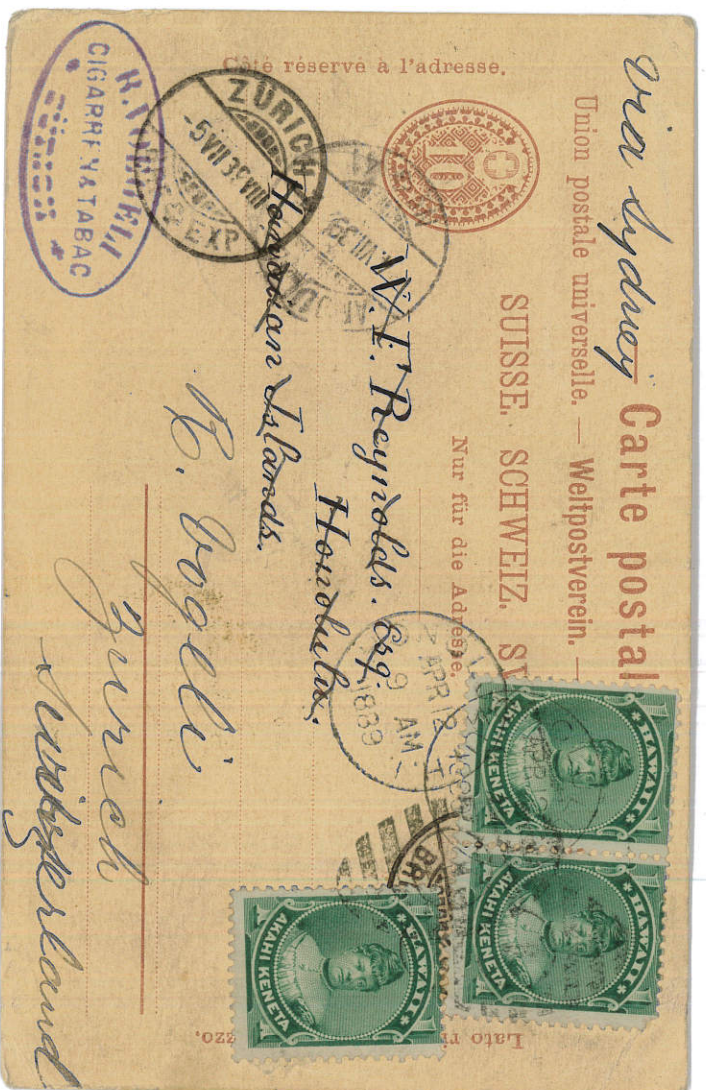 via Sydney
Carte postal
Union postale universelle. — Weltpostverein. —
SUISSE. SCHWEIZ. SV
Nur für die Adresse.
Côté réservé à l'adresse.
Lato ri
zzo.
10
W. F. Reynolds. Esq.
Honolulu,
Hawaiian Islands.
R. Vogeli
Zurich
Switzerland
CIGARREN & TABAC
ZÜRICH
ZÜRICH
-5 VII 39 VIII
EXP
APR 12
9 AM
1889
HAWAII
AKAHI KENETA
HAWAII
AKAHI KENETA
HAWAII
AKAHI KENETA